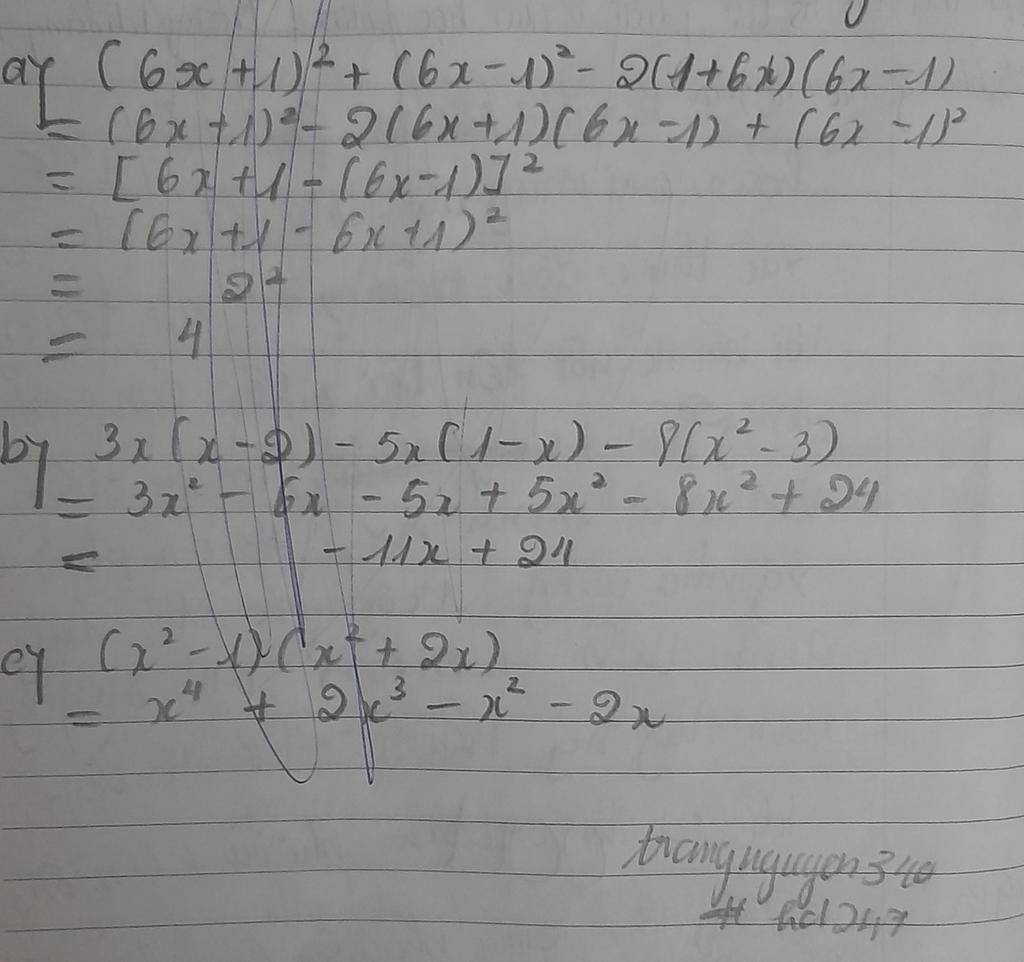 a) (6x + 1)² + (6x - 1)² - 2(1 + 6x)(6x - 1)
= (6x + 1)² - 2(6x + 1)(6x - 1) + (6x - 1)²
= [6x + 1 - (6x - 1)]²
= (6x + 1 - 6x + 1)²
= 2²
= 4
b) 3x(x - 2) - 5x(1 - x) - 8(x² - 3)
= 3x² - 6x - 5x + 5x² - 8x² + 24
= - 11x + 24
c) (x² - 1)(x² + 2x)
= x⁴ + 2x³ - x² - 2x
trangnguyen340
# hd247